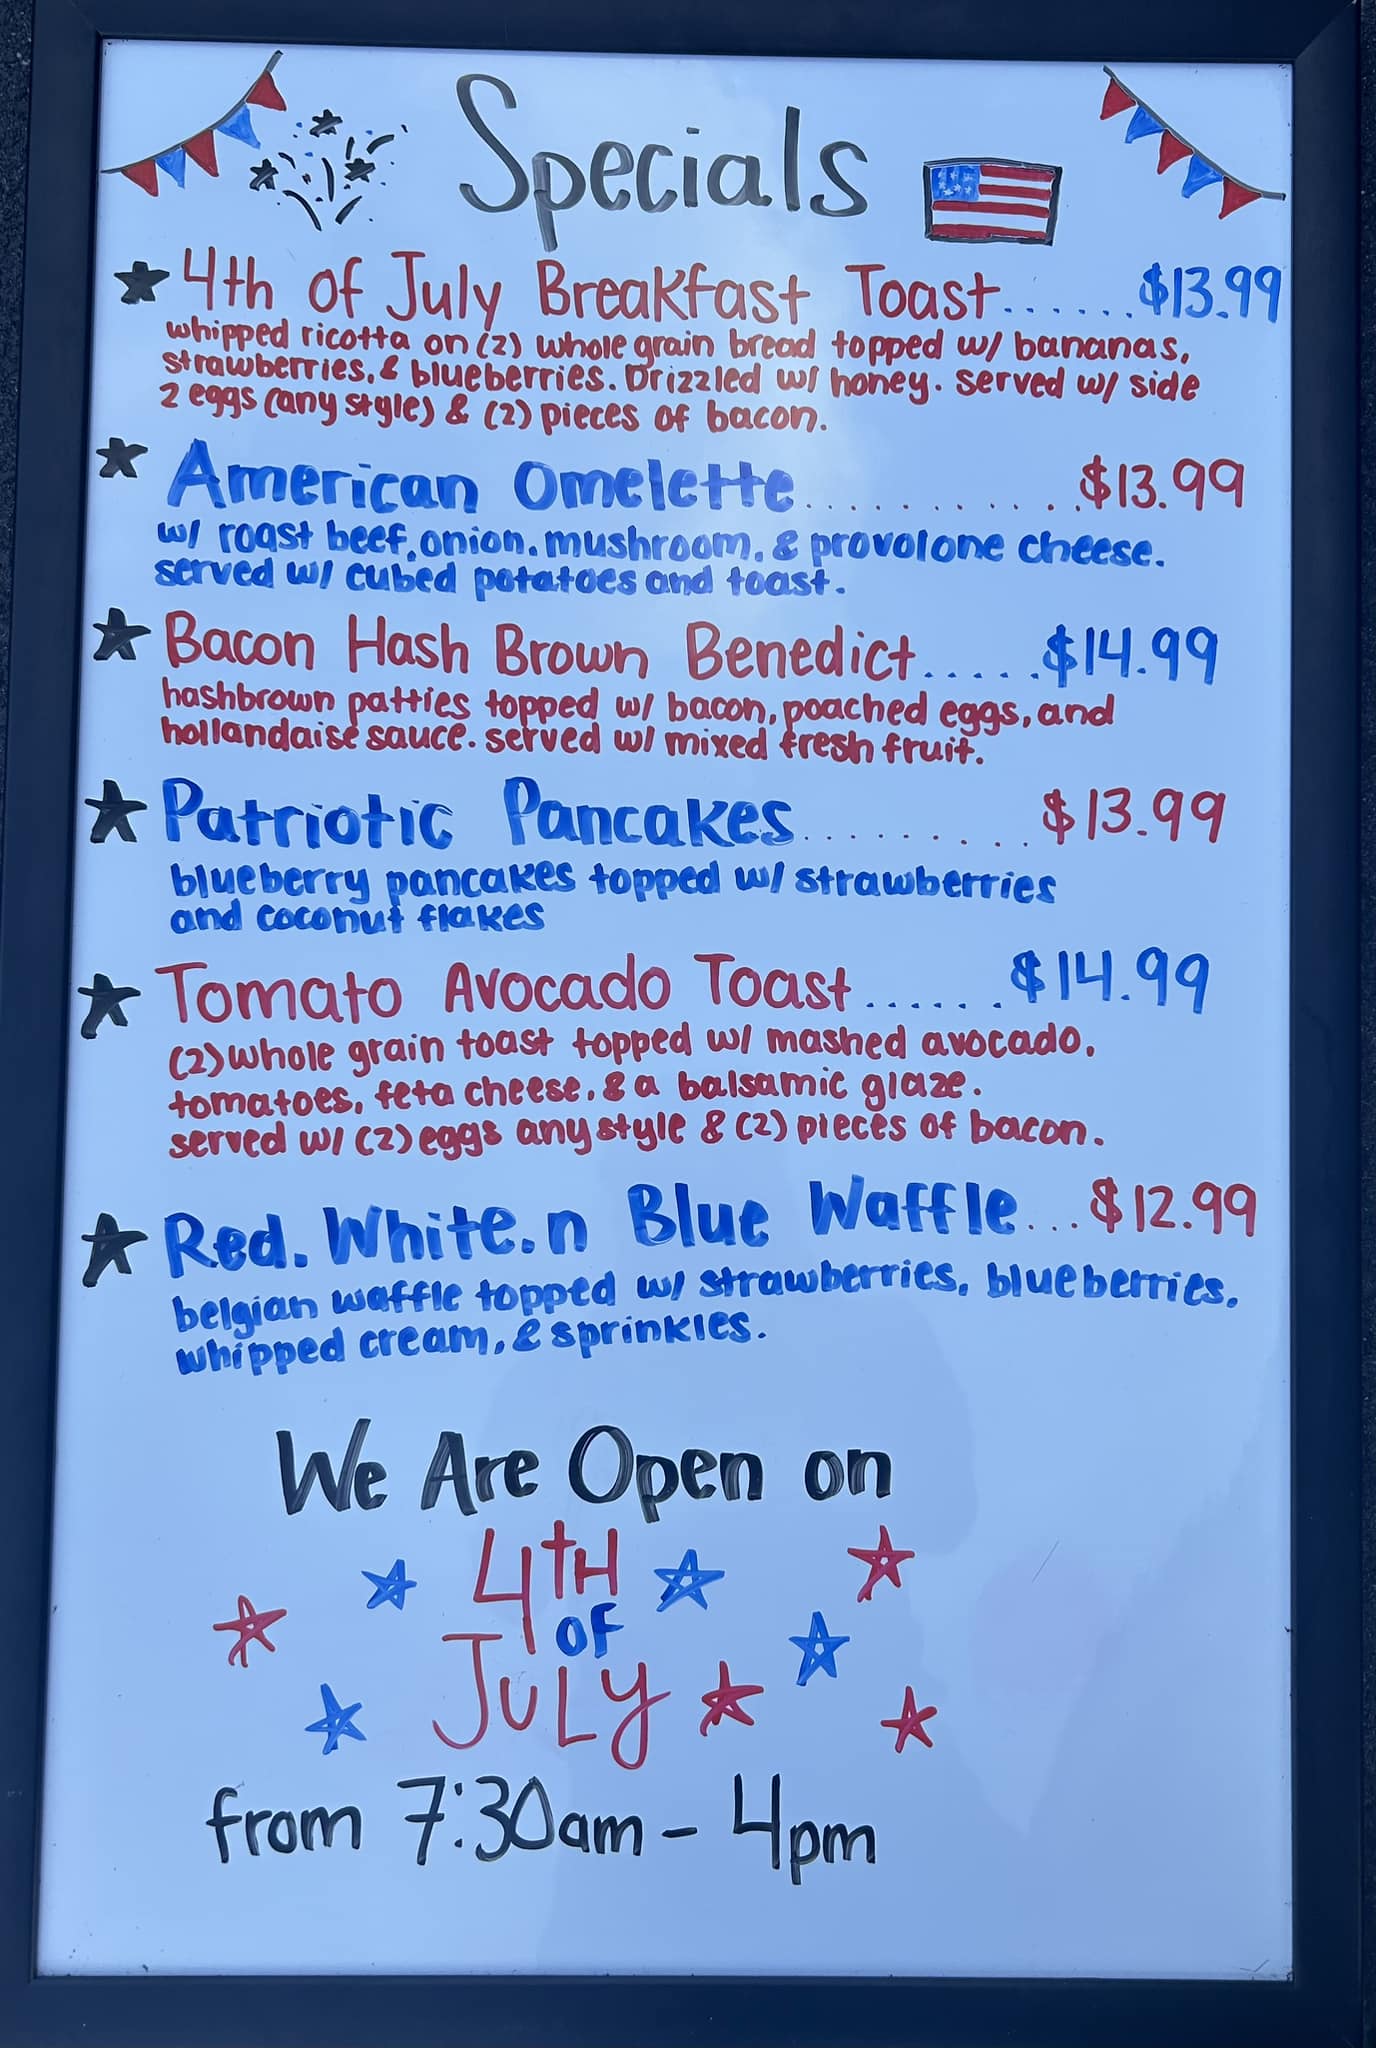 Specials
4th of July Breakfast Toast......$13.99
whipped ricotta on (2) whole grain bread topped w/ bananas,
strawberries, & blueberries. Drizzled w/ honey. served w/ side
2 eggs (any style) & (2) pieces of bacon.
American Omelette............$13.99
w/ roast beef, onion, mushroom, & provolone cheese.
served w/ cubed potatoes and toast.
Bacon Hash Brown Benedict......$14.99
hashbrown patties topped w/ bacon, poached eggs, and
hollandaise sauce. served w/ mixed fresh fruit.
Patriotic Pancakes..........$13.99
blueberry pancakes topped w/ strawberries
and coconut flakes
Tomato Avocado Toast......$14.99
(2) whole grain toast topped w/ mashed avocado,
tomatoes, feta cheese, & a balsamic glaze.
served w/ (2) eggs any style & (2) pieces of bacon.
Red, White, n Blue Waffle...$12.99
belgian waffle topped w/ strawberries, blueberries,
whipped cream, & sprinkles.
We Are Open on
4TH
OF
JULY
from 7:30am - 4pm